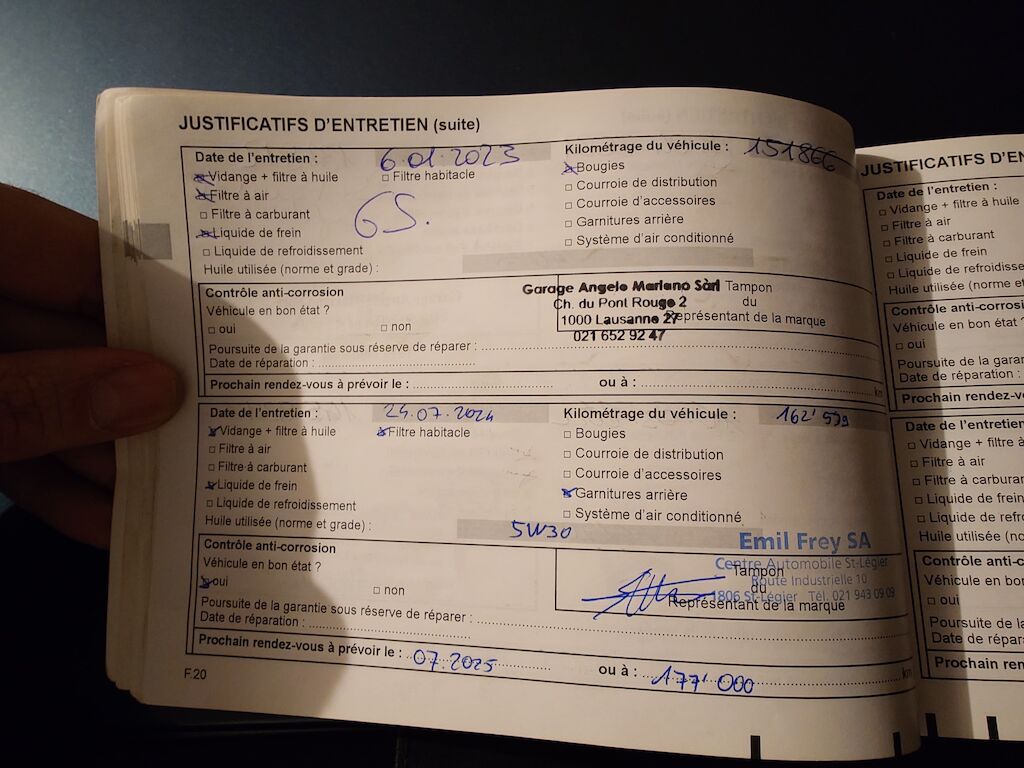 JUSTIFICATIFS D'ENTRETIEN (suite)
Date de l'entretien : 6.01.2023 Kilométrage du véhicule : 151866
Vidange + filtre à huile Filtre habitacle Bougies
Filtre à air Courroie de distribution
Filtre à carburant GS. Courroie d'accessoires
Liquide de frein Garnitures arrière
Liquide de refroidissement Système d'air conditionné
Huile utilisée (norme et grade) :
Contrôle anti-corrosion
Véhicule en bon état ?
oui non
Garage Angelo Mariano Sàrl
Ch. du Pont Rouge 2
1000 Lausanne 27
021 652 92 47
Tampon
du
Représentant de la marque
Poursuite de la garantie sous réserve de réparer :
Date de réparation :
Prochain rendez-vous à prévoir le : ou à : km
Date de l'entretien : 24.07.2024 Kilométrage du véhicule : 162'599
Vidange + filtre à huile Filtre habitacle Bougies
Filtre à air Courroie de distribution
Filtre à carburant Courroie d'accessoires
Liquide de frein Garnitures arrière
Liquide de refroidissement Système d'air conditionné
Huile utilisée (norme et grade) : 5W30
Contrôle anti-corrosion
Véhicule en bon état ?
oui non
Emil Frey SA
Centre Automobile St-Légier
Route Industrielle 10
1806 St-Légier Tél. 021 943 09 09
Tampon
du
Représentant de la marque
Poursuite de la garantie sous réserve de réparer :
Date de réparation :
Prochain rendez-vous à prévoir le : 07.2025 ou à : 177'000 km
F.20
JUSTIFICATIFS D'EN
Date de l'entretien :
Vidange + filtre à huile
Filtre à air
Filtre à carburant
Liquide de frein
Liquide de refroidisse
Huile utilisée (norme et
Contrôle anti-corrosi
Véhicule en bon état ?
oui
Poursuite de la garan
Date de réparation :
Prochain rendez-v
Date de l'entretien
Vidange + filtre à
Filtre à air
Filtre à carburan
Liquide de frein
Liquide de refro
Huile utilisée (n
Contrôle anti-c
Véhicule en bo
oui
Poursuite de la
Date de répar
Prochain ren